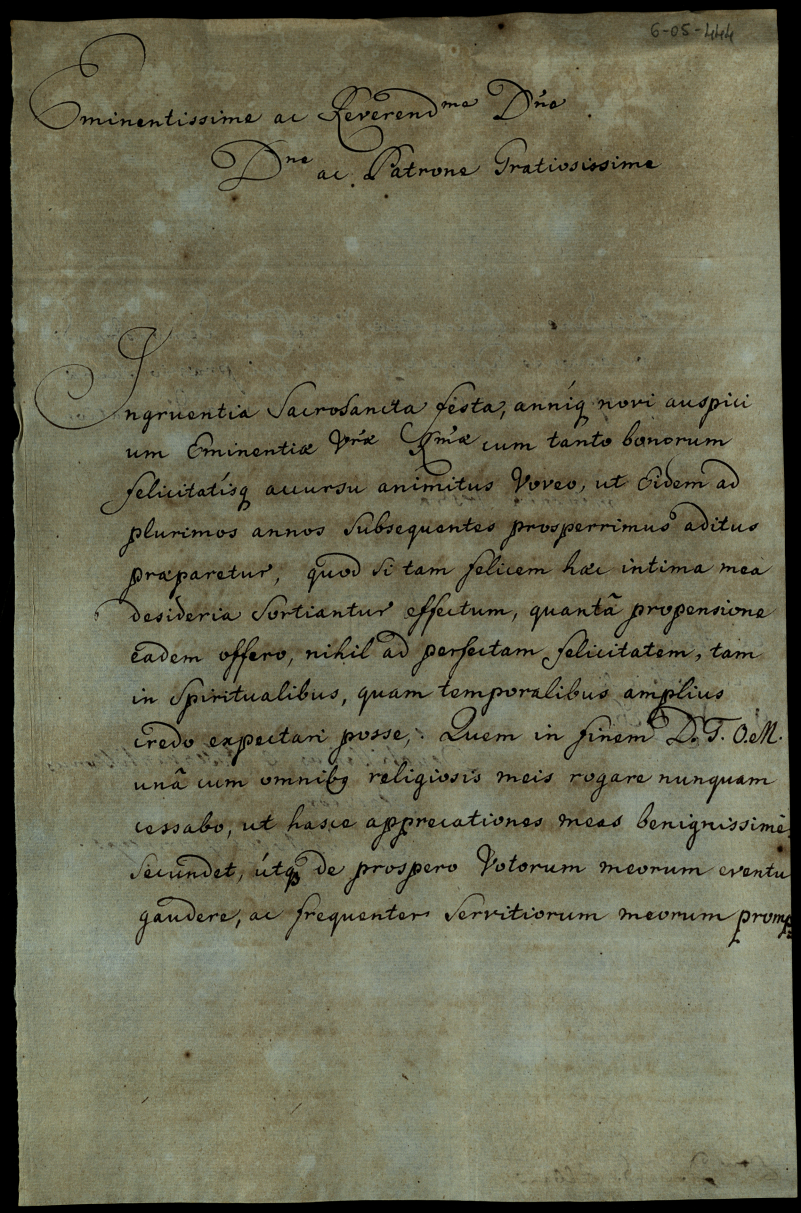 6-05-444
Eminentissime ac Reverend^me Dn̄e
D^ne ac Patrone Gratiosissime
Ingruentia SacroSancta festa, anniq́ novi auspici
um Eminentiæ Vr̄æ Rm̄æ cum tanto bonorum
felicitatisq́ accursu animitus Voveo, ut Eidem ad
plurimos annos Subsequentes prosperrimus aditus
præparetur, quod Si tam felicem hæc intima mea
desideria Sortiantur effectum, quantâ propensione
eadem offero, nihil ad perfectam felicitatem, tam
in Spiritualibus, quam temporalibus amplius
credo expectari posse,. Quem in finem D. T. O. M.
unâ cum omnibq religiosis meis rogare nunquam
cessabo, ut hasce apprecationes meas benignissimè
Secundet, útq de prospero Votorum meorum eventu
gaudere, ac frequenter Servitiorum meorum promp=